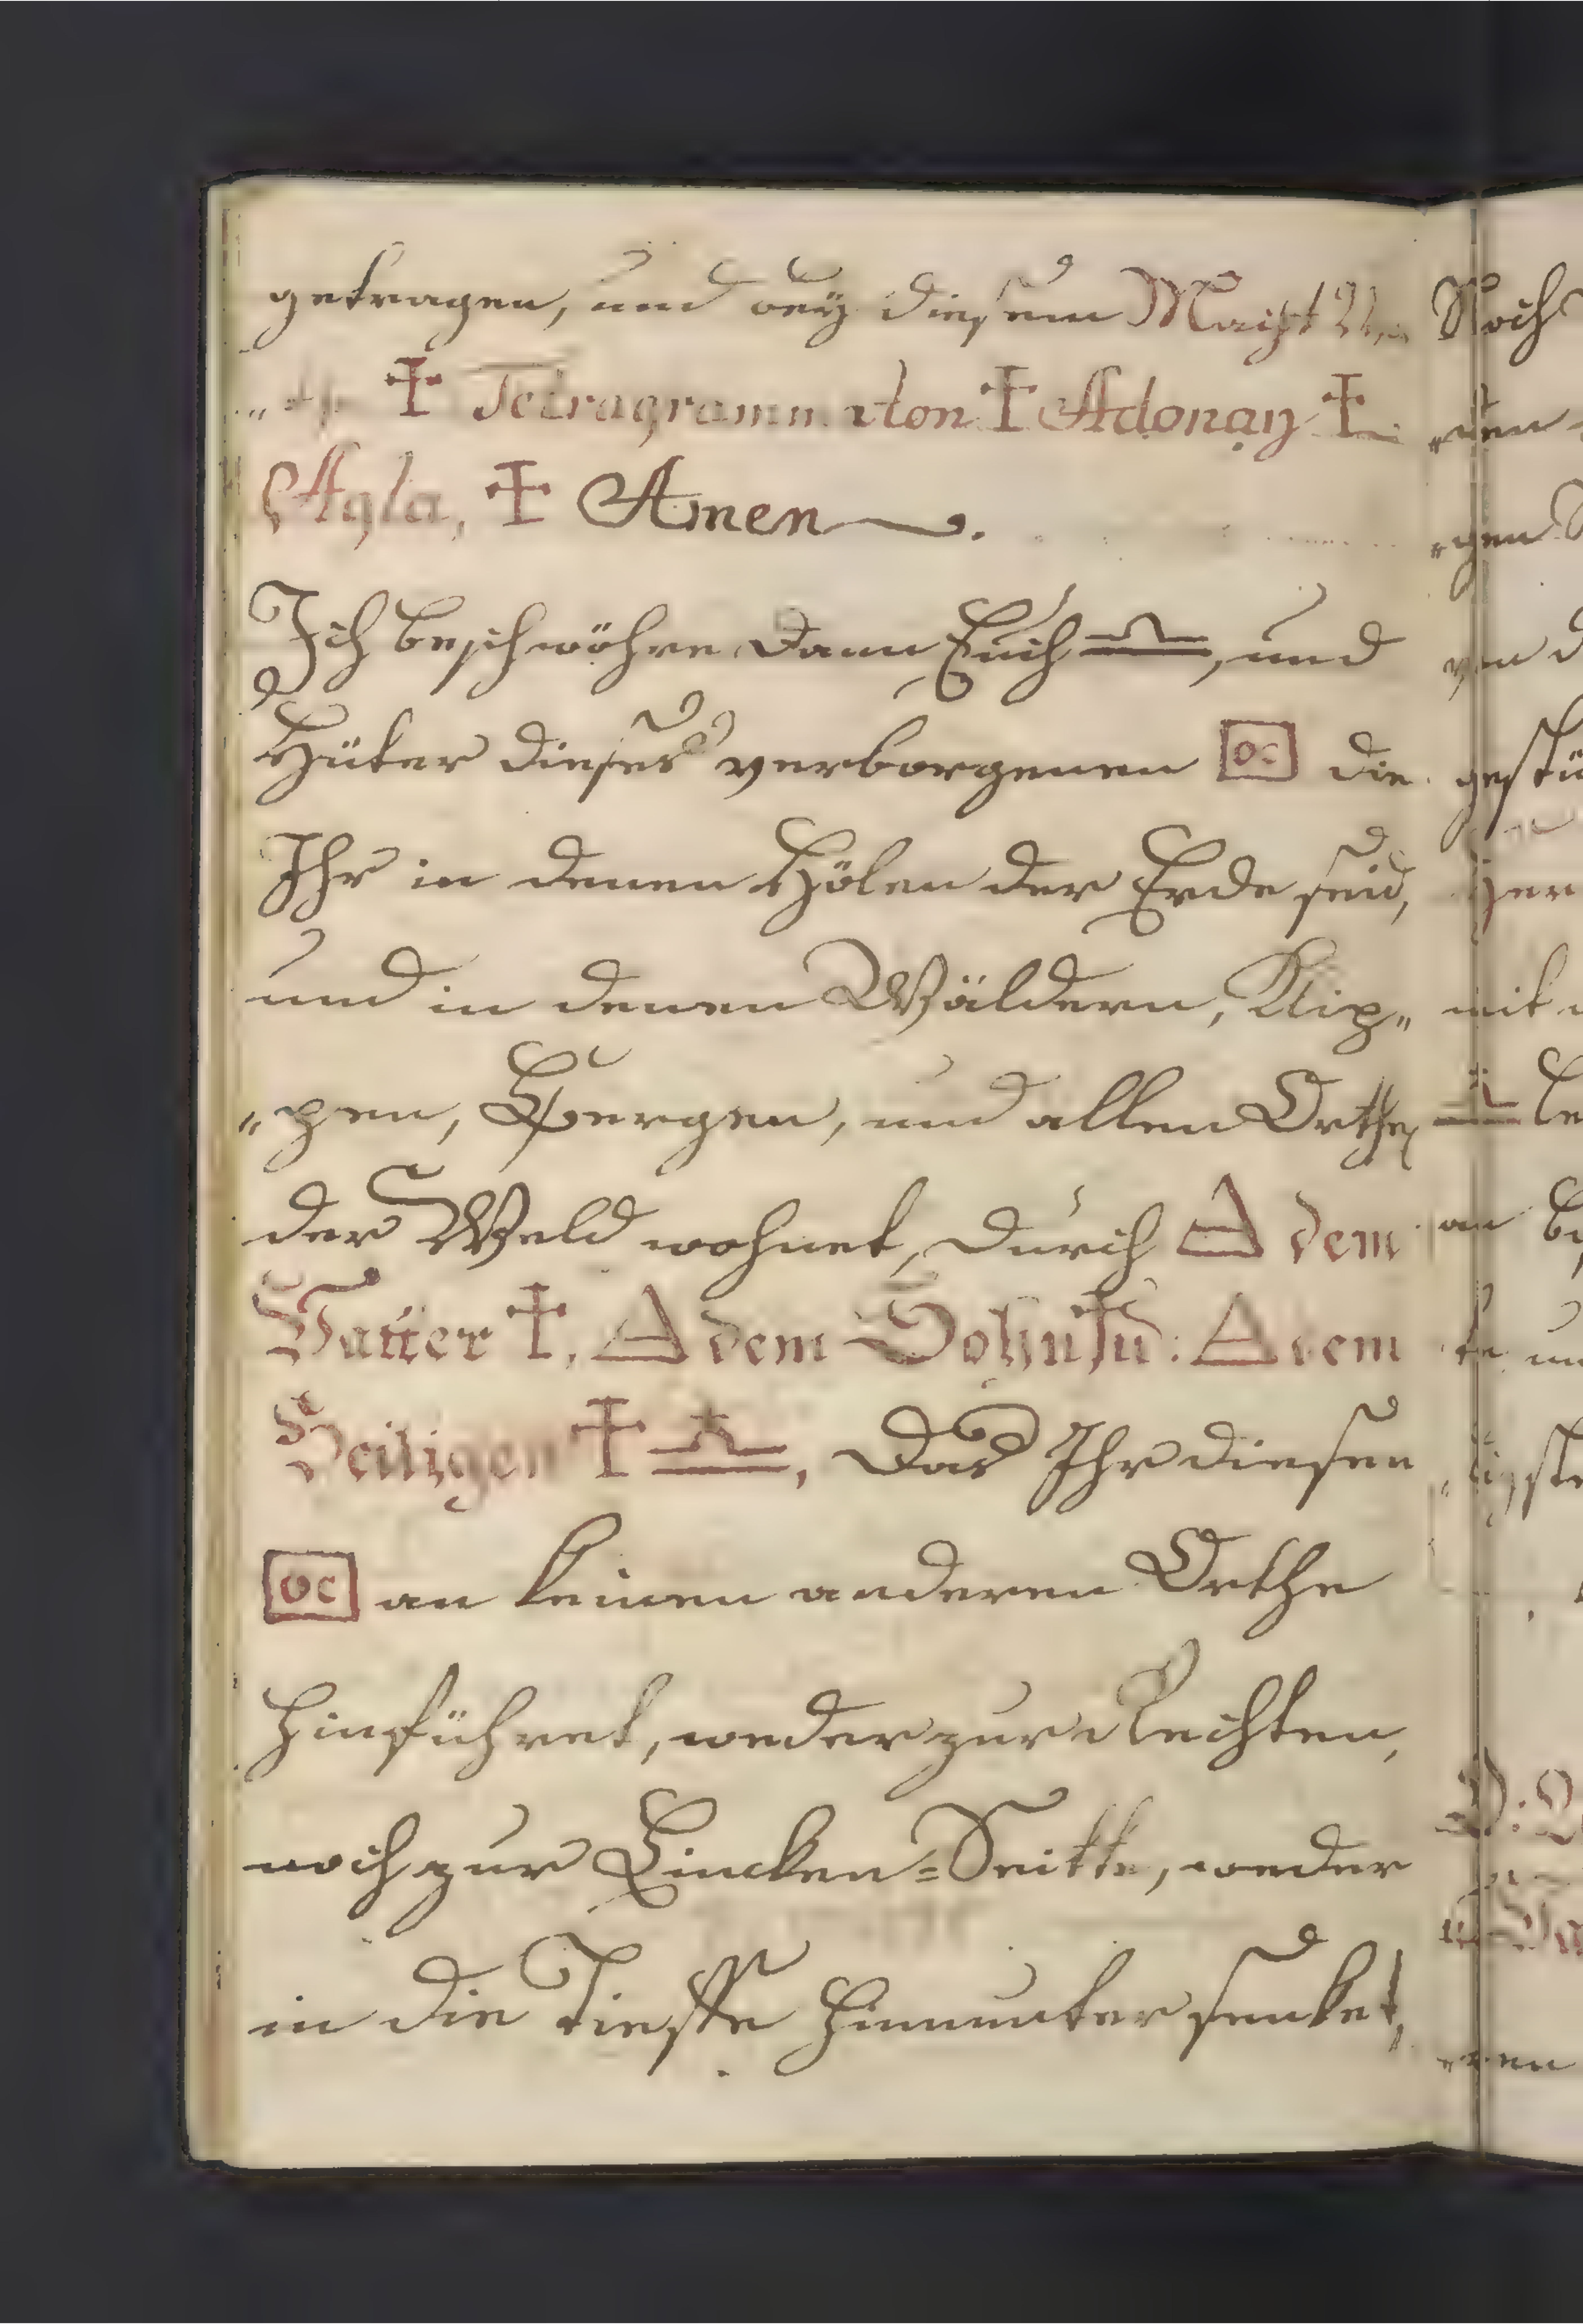 getragen, und beÿ diesem
✝ Tetragramm aton ✝ Adonaÿ ✝
Agla, ✝ Amen.
Ich beschwöhre dann Euch ♎, und
Hüter dieses verborgenen oc die
Ihr in denen Hölen der Erde seid,
und in denen Wäldern, Klip„
„pen, Bergen, und allen Orthen
der Weld wohnet, durch △ dem
Vatter ✝, △ dem Sohn ✝: △ dem
Heiligen ✝ ♎, Das Ihr diesen
oc an keinen anderen Orthe
hinführet, weder zur Rechten,
noch zur Lincken=Seitte, weder
in die Tieffe hinunter senket,